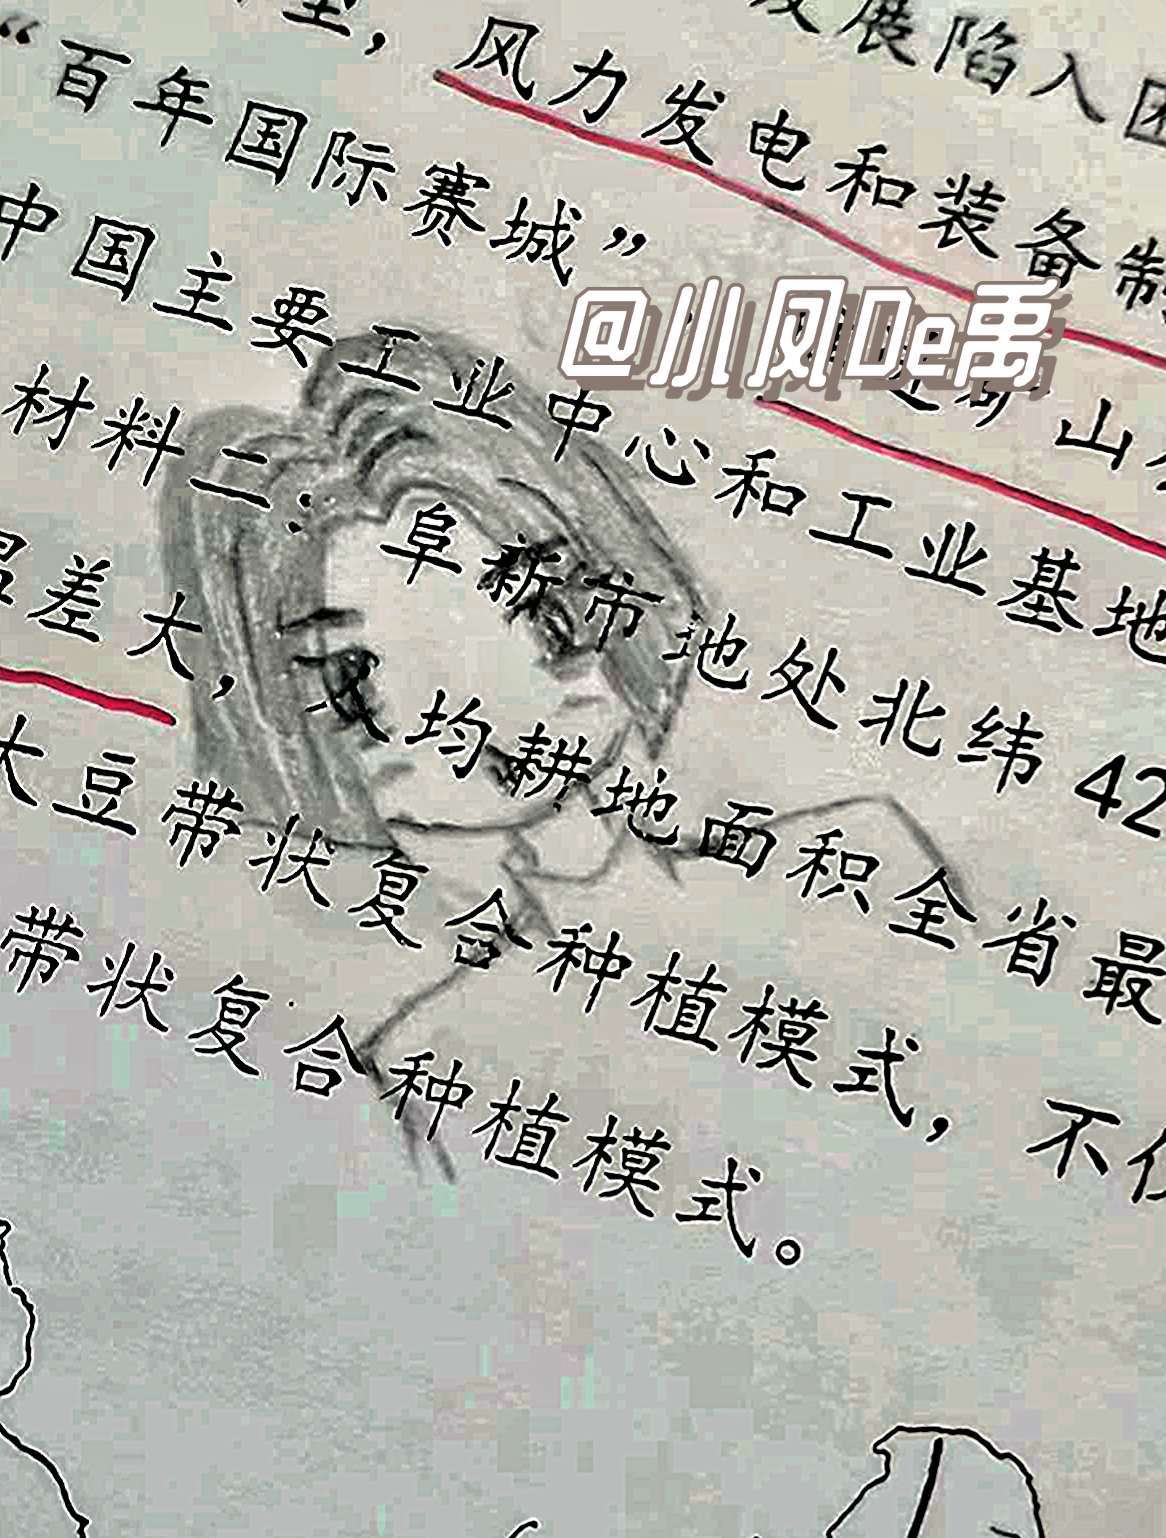 发展陷入困
型，风力发电和装备制
“百年国际赛城”
@小凤De禹
山
中国主要工业中心和工业基地
材料二：阜新市地处北纬42
温差大，人均耕地面积全省最
大豆带状复合种植模式，不仅
带状复合种植模式。